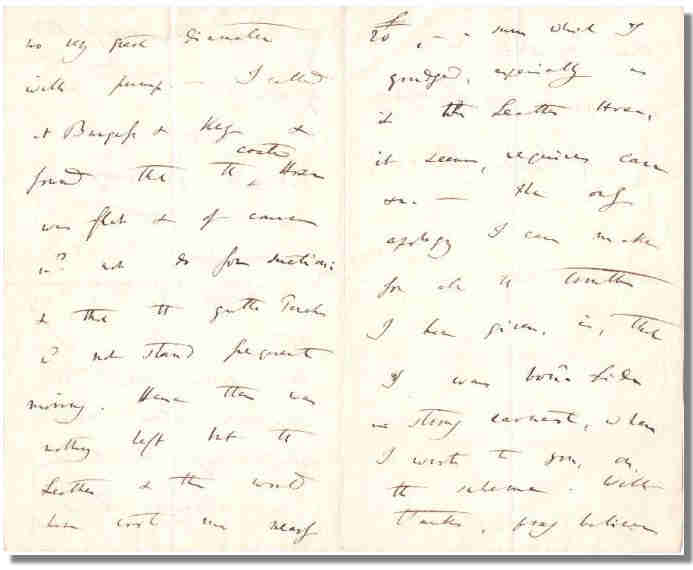 no very great diameter
with pump. — I called
at Burgess & Key &
found that the coated Hose
was flat & of course
wd not do for suction;
& that the gutta Percha
wd not stand frequent
moving. Hence there was
nothing left but the
Leather & this would
have cost me nearly
£20, — a sum which I
grudged, especially as
the Leather Hose,
it seems, requires care
&c. — the only
apology I can make
for all the trouble
I have given, is, that
I was bonâ fide
in strong earnest, when
I wrote to you, on
the scheme. With
thanks, pray believe